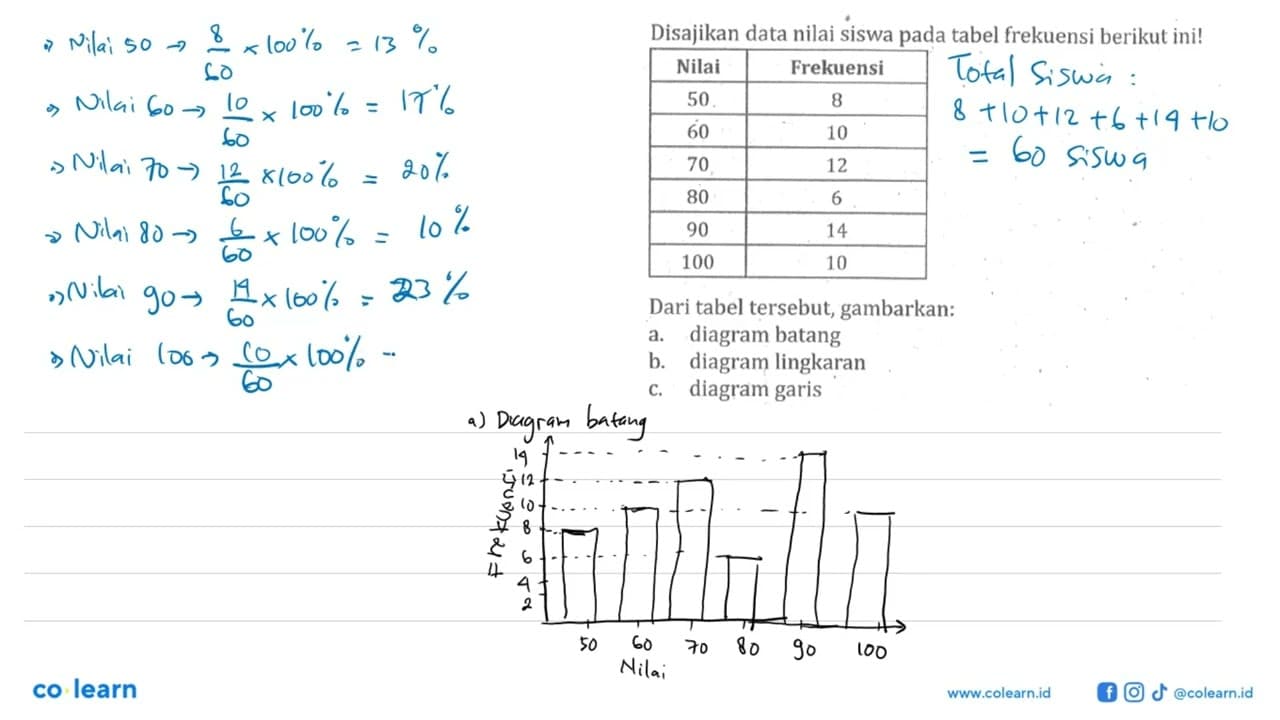 ⇒ Nilai 50 → 8/60 × 100% = 13%
⇒ Nilai 60 → 10/60 × 100% = 17%
⇒ Nilai 70 → 12/60 × 100% = 20%
⇒ Nilai 80 → 6/60 × 100% = 10%
⇒ Nilai 90 → 14/60 × 100% = 23%
⇒ Nilai 100 → 10/60 × 100% =
Disajikan data nilai siswa pada tabel frekuensi berikut ini!
Nilai Frekuensi
50 8
60 10
70 12
80 6
90 14
100 10
Total Siswa :
8 + 10 + 12 + 6 + 14 + 10
= 60 siswa
Dari tabel tersebut, gambarkan:
a. diagram batang
b. diagram lingkaran
c. diagram garis
a) Diagram batang
Frekuensi
14
12
10
8
6
4
2
50 60 70 80 90 100
Nilai
co learn
www.colearn.id @colearn.id